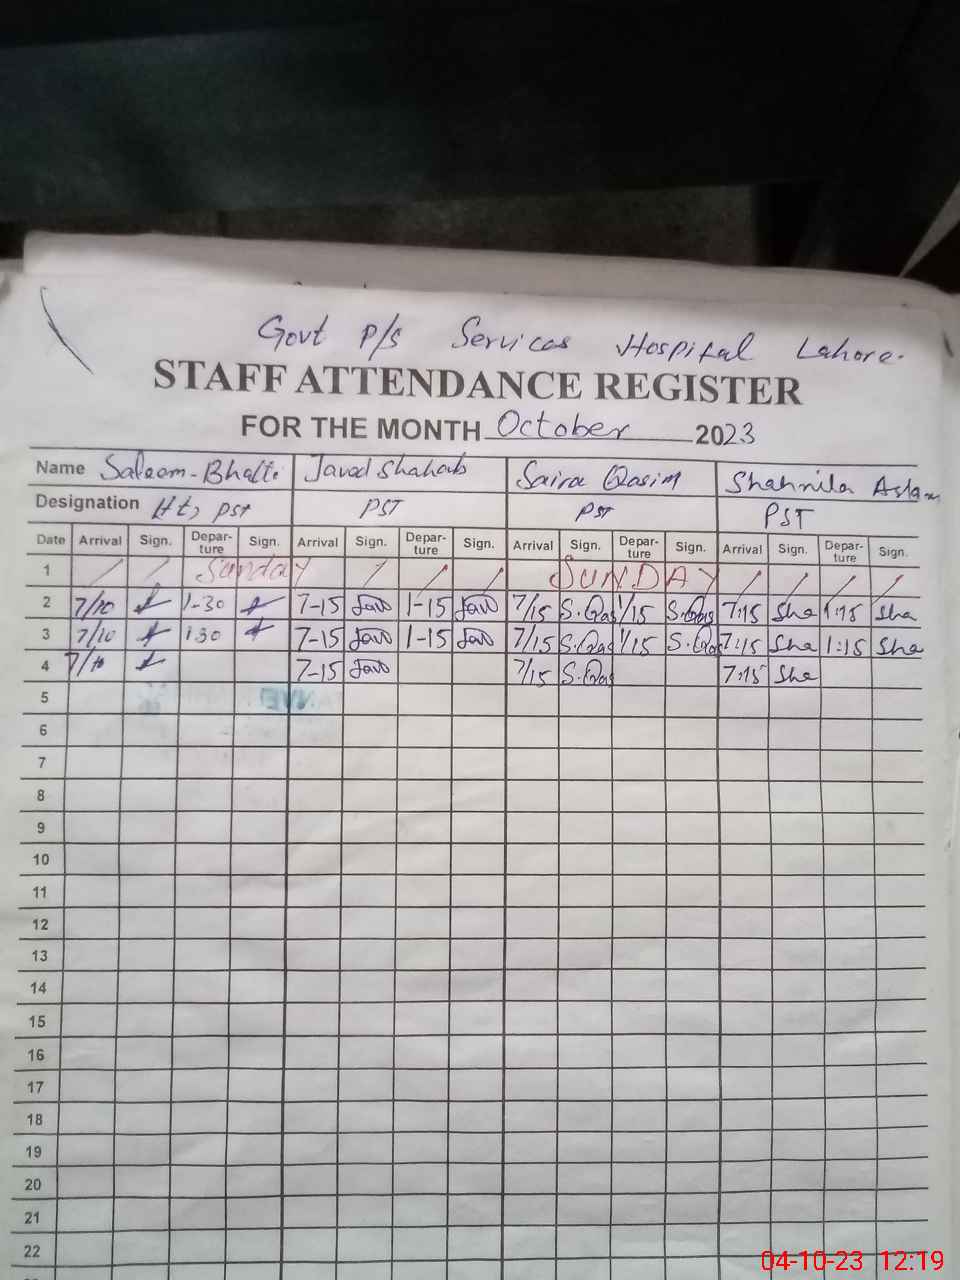 Govt P/S Services Hospital Lahore.
STAFF ATTENDANCE REGISTER
FOR THE MONTH October 2023
Name Saleem-Bhatti Javed Shahab Saira Qasim Shahnila Aslam
Designation Ht, PST PST PST PST
Date Arrival Sign. Depar-ture Sign. Arrival Sign. Depar-ture Sign. Arrival Sign. Depar-ture Sign. Arrival Sign. Depar-ture Sign.
1 Sunday SUNDAY
2 7/10 1-30 7-15 Jav 1-15 Jav 7/15 S.Qas 1/15 S.Qas 7:15 Sha 1:15 Sha
3 7/10 1 30 7-15 Jav 1-15 Jav 7/15 S.Qas 1/15 S.Qas 7:15 Sha 1:15 Sha
4 7/10 7-15 Jav 7/15 S.Qas 7:15 Sha
5
6
7
8
9
10
11
12
13
14
15
16
17
18
19
20
21
22
04-10-23 12:19